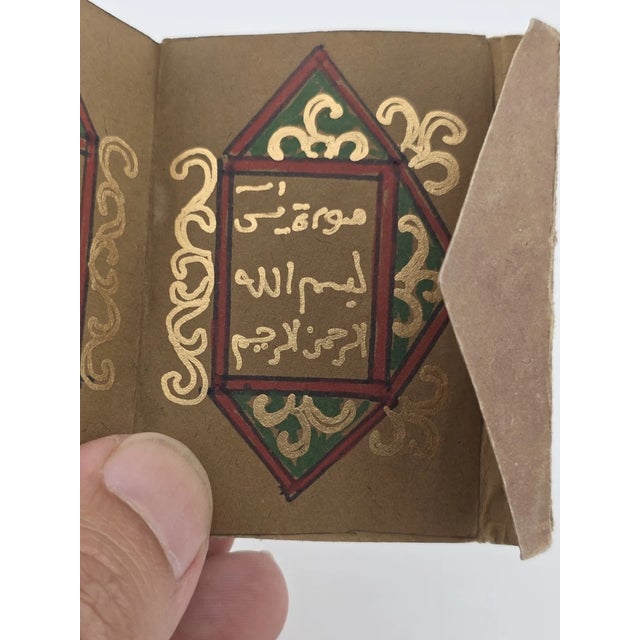 سورة يس
بسم الله
الرحمن الرحيم